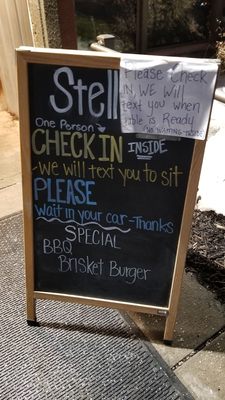 Stell
Please Check
in WE Will
Text you when
table is Ready
NO WAITING
One Person
CHECK IN INSIDE
- We will text you to sit
PLEASE
Wait in your car - Thanks
SPECIAL
BBQ
Brisket Burger